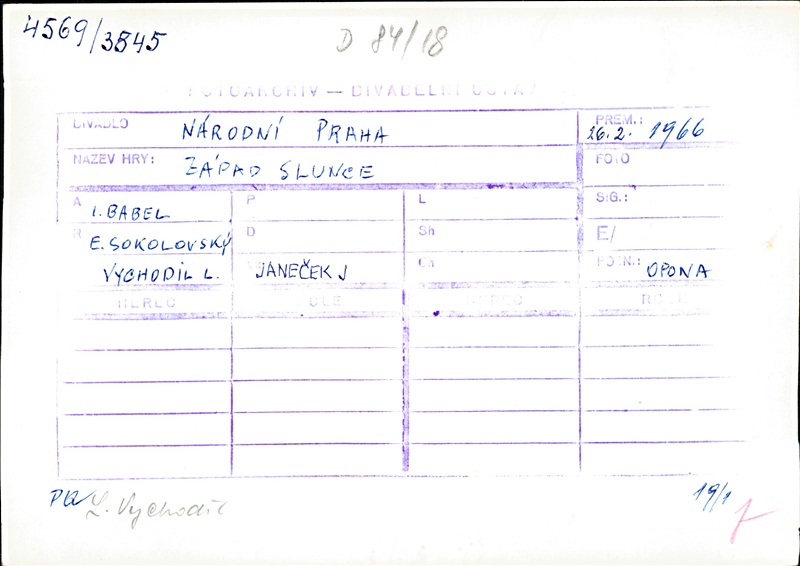 4569/3545
D 84/18
FOTOARCHIV — DIVADELNÍ ÚSTAV
DIVADLO NÁRODNÍ PRAHA PREM.: 26.2. 1966
NÁZEV HRY: ZÁPAD SLUNCE FOTO
A I. BABEL P L SIG.:
R E. SOKOLOVSKÝ D Sh E/
VYCHODIL L. JANEČEK J Ch POZN.: OPONA
HEREC ROLE HEREC ROLE
L. Vychodil
19/1